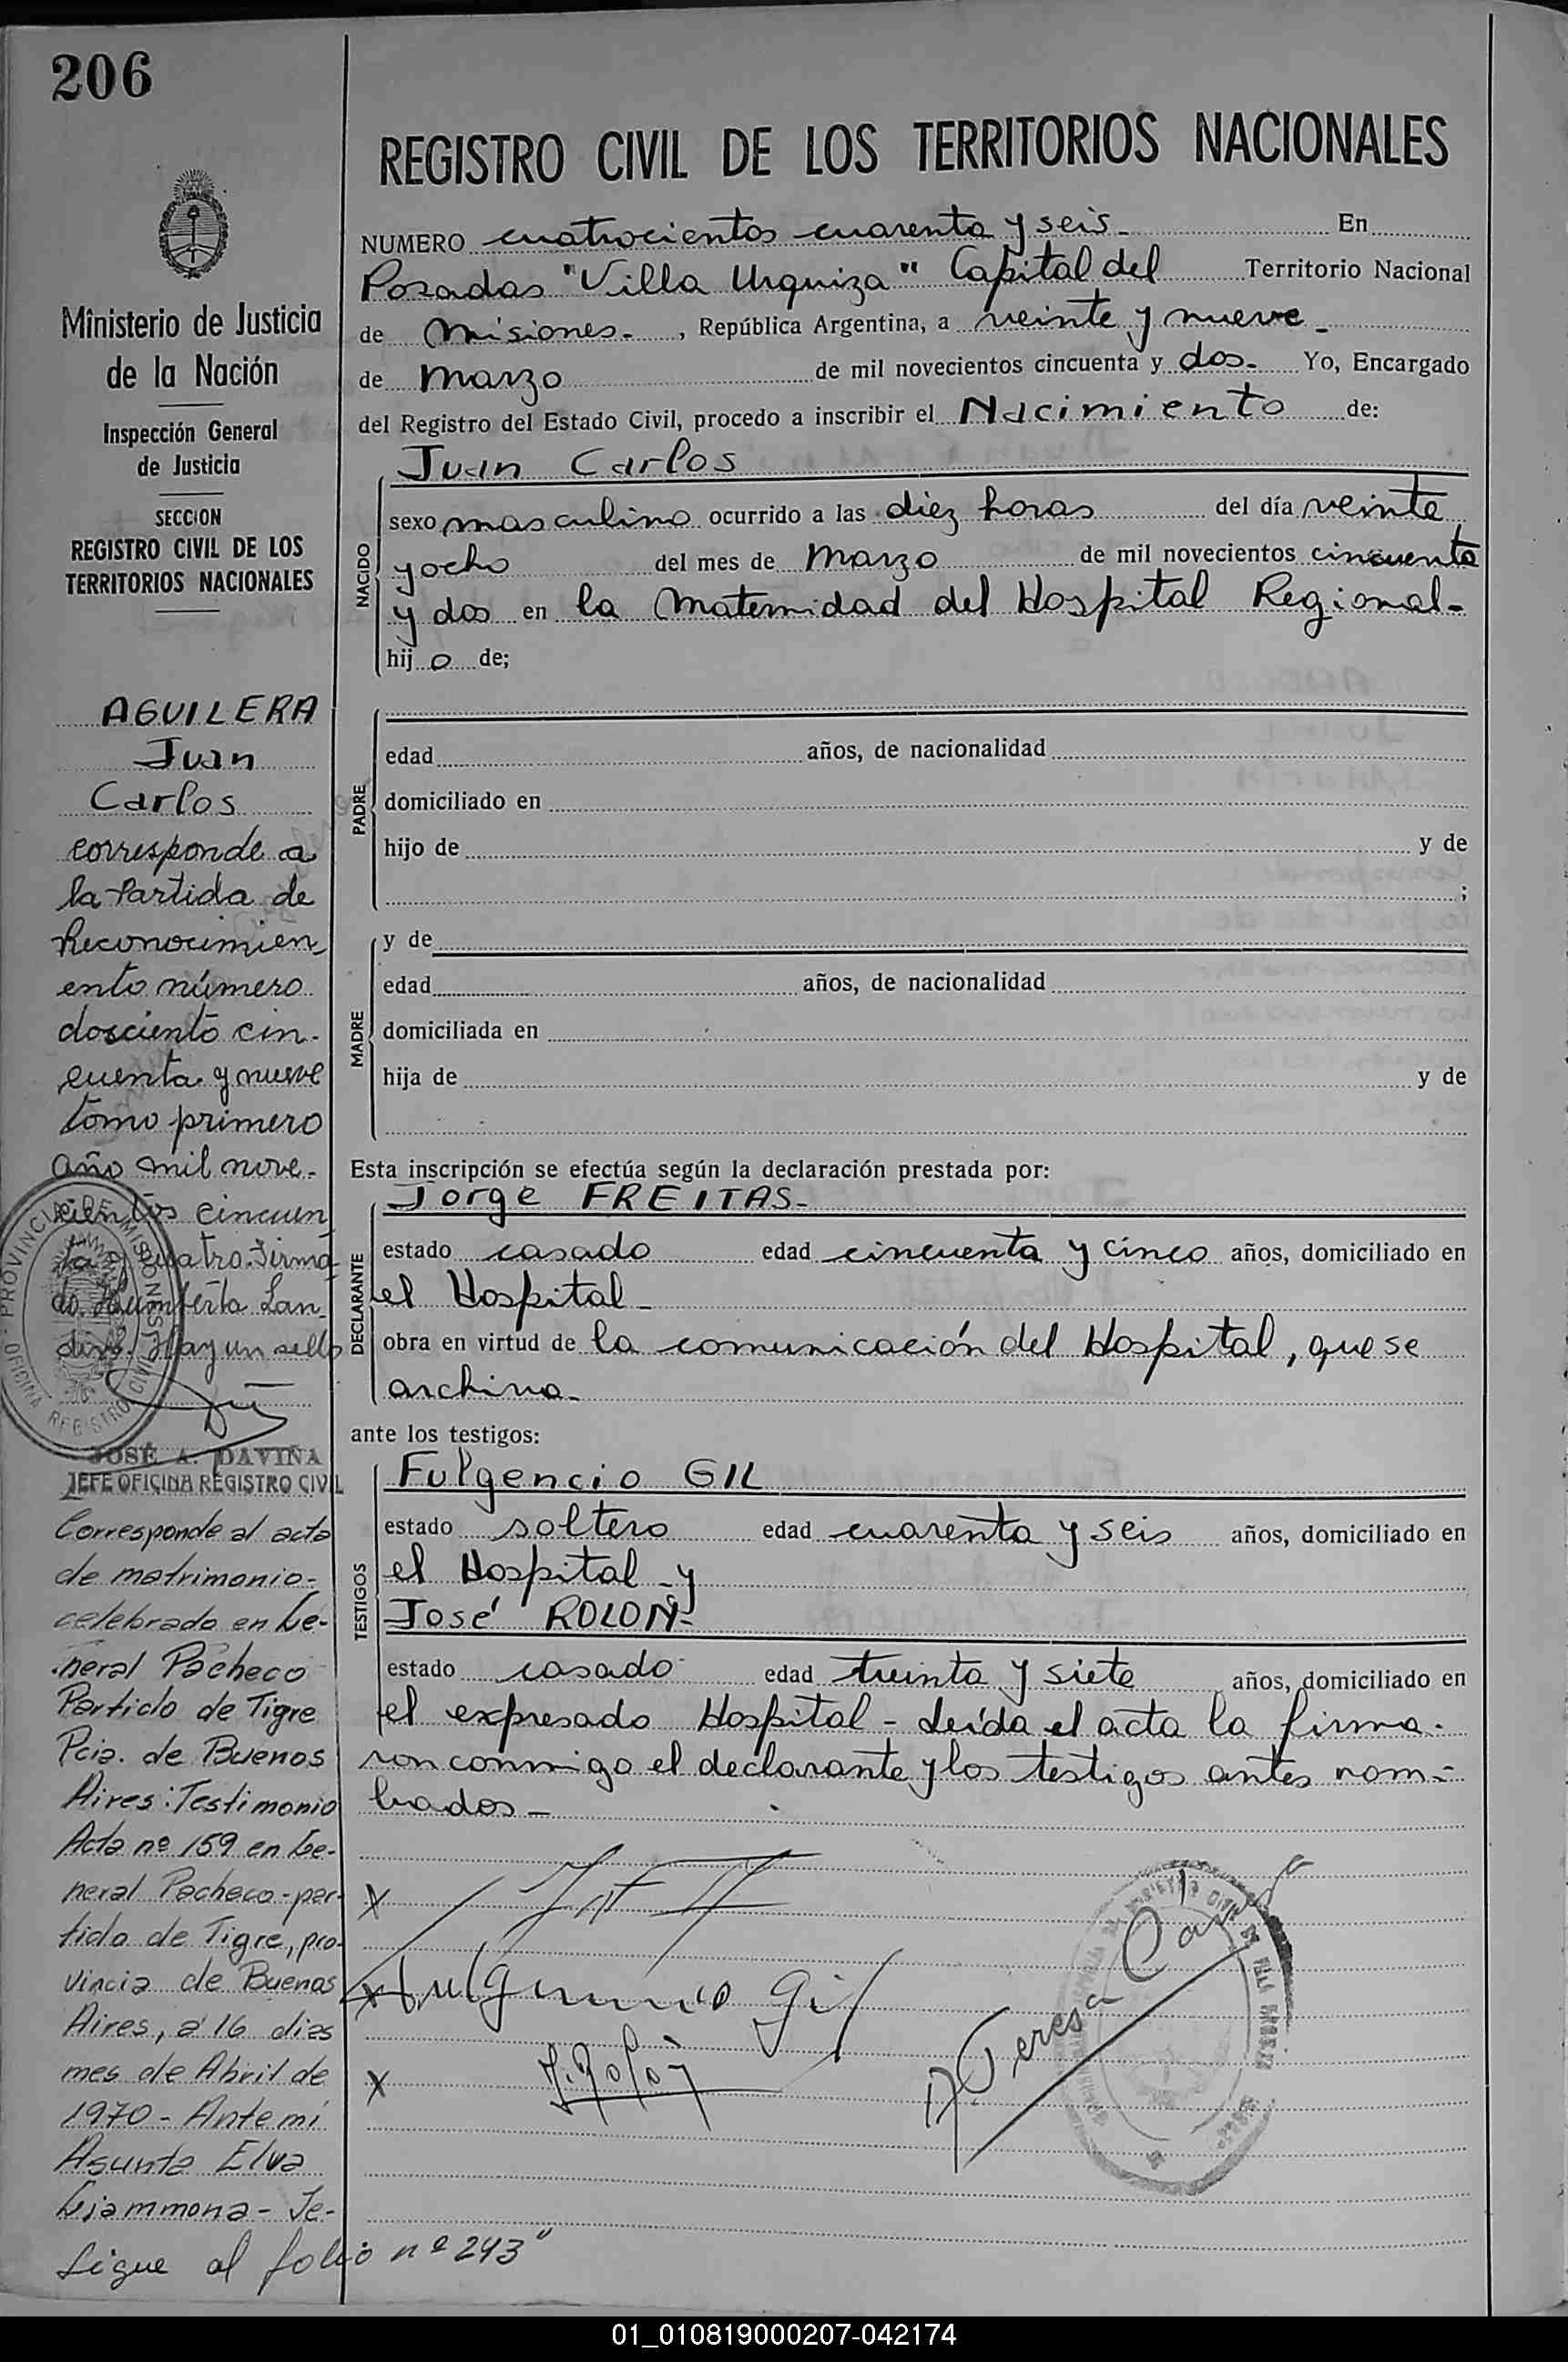 206
REGISTRO CIVIL DE LOS TERRITORIOS NACIONALES
Ministerio de Justicia
de la Nación
Inspección General
de Justicia
SECCION
REGISTRO CIVIL DE LOS
TERRITORIOS NACIONALES
AGUILERA
Juan
Carlos
corresponde a
la Partida de
Reconocimien-
ento número
dosciento cin-
cuenta y nueve
tomo primero
año mil nove-
cientos cincuen
ta y cuatro. Firma-
do. Humberto Lan-
Hay un sello
PROVINCIA DE MISIONES
OFICINA REGISTRO CIVIL
JOSÉ A. DAVIÑA
JEFE OFICINA REGISTRO CIVIL
Corresponde al acta
de matrimonio-
celebrado en Ge-
neral Pacheco
Partido de Tigre
Pcia. de Buenos
Aires: Testimonio
Acta nº 159 en Ge-
neral Pacheco-par-
tido de Tigre, pro-
vincia de Buenos
Aires, a 16 dias
mes de Abril de
1970 - Ante mi
Asunta Elva
Giammona - Je-
Sigue al folio nº 243"
NUMERO cuatrocientos cuarenta y seis- En
Posadas "Villa Urquiza" Capital del Territorio Nacional
de Misiones-, República Argentina, a veinte y nueve-
de Marzo de mil novecientos cincuenta y dos- Yo, Encargado
del Registro del Estado Civil, procedo a inscribir el Nacimiento de:
Juan Carlos
NACIDO
sexo masculino ocurrido a las diez horas del día veinte
y ocho del mes de Marzo de mil novecientos cincuenta
y dos en la Maternidad del Hospital Regional-
hij o de;
PADRE
edad años, de nacionalidad
domiciliado en
hijo de y de
;
MADRE
y de
edad años, de nacionalidad
domiciliada en
hija de y de
Esta inscripción se efectúa según la declaración prestada por:
Jorge FREITAS-
DECLARANTE
estado casado edad cincuenta y cinco años, domiciliado en
el Hospital-
obra en virtud de la comunicación del Hospital, que se
archiva-
ante los testigos:
Fulgencio GIL
TESTIGOS
estado soltero edad cuarenta y seis años, domiciliado en
el Hospital-y
José ROLON-
estado casado edad treinta y siete años, domiciliado en
el expresado Hospital - Leída el acta la firma-
ron conmigo el declarante y los testigos antes nom-
brados-
X
X Fulgencio Gil
X J. Rolón
Teresa
01_010819000207-042174